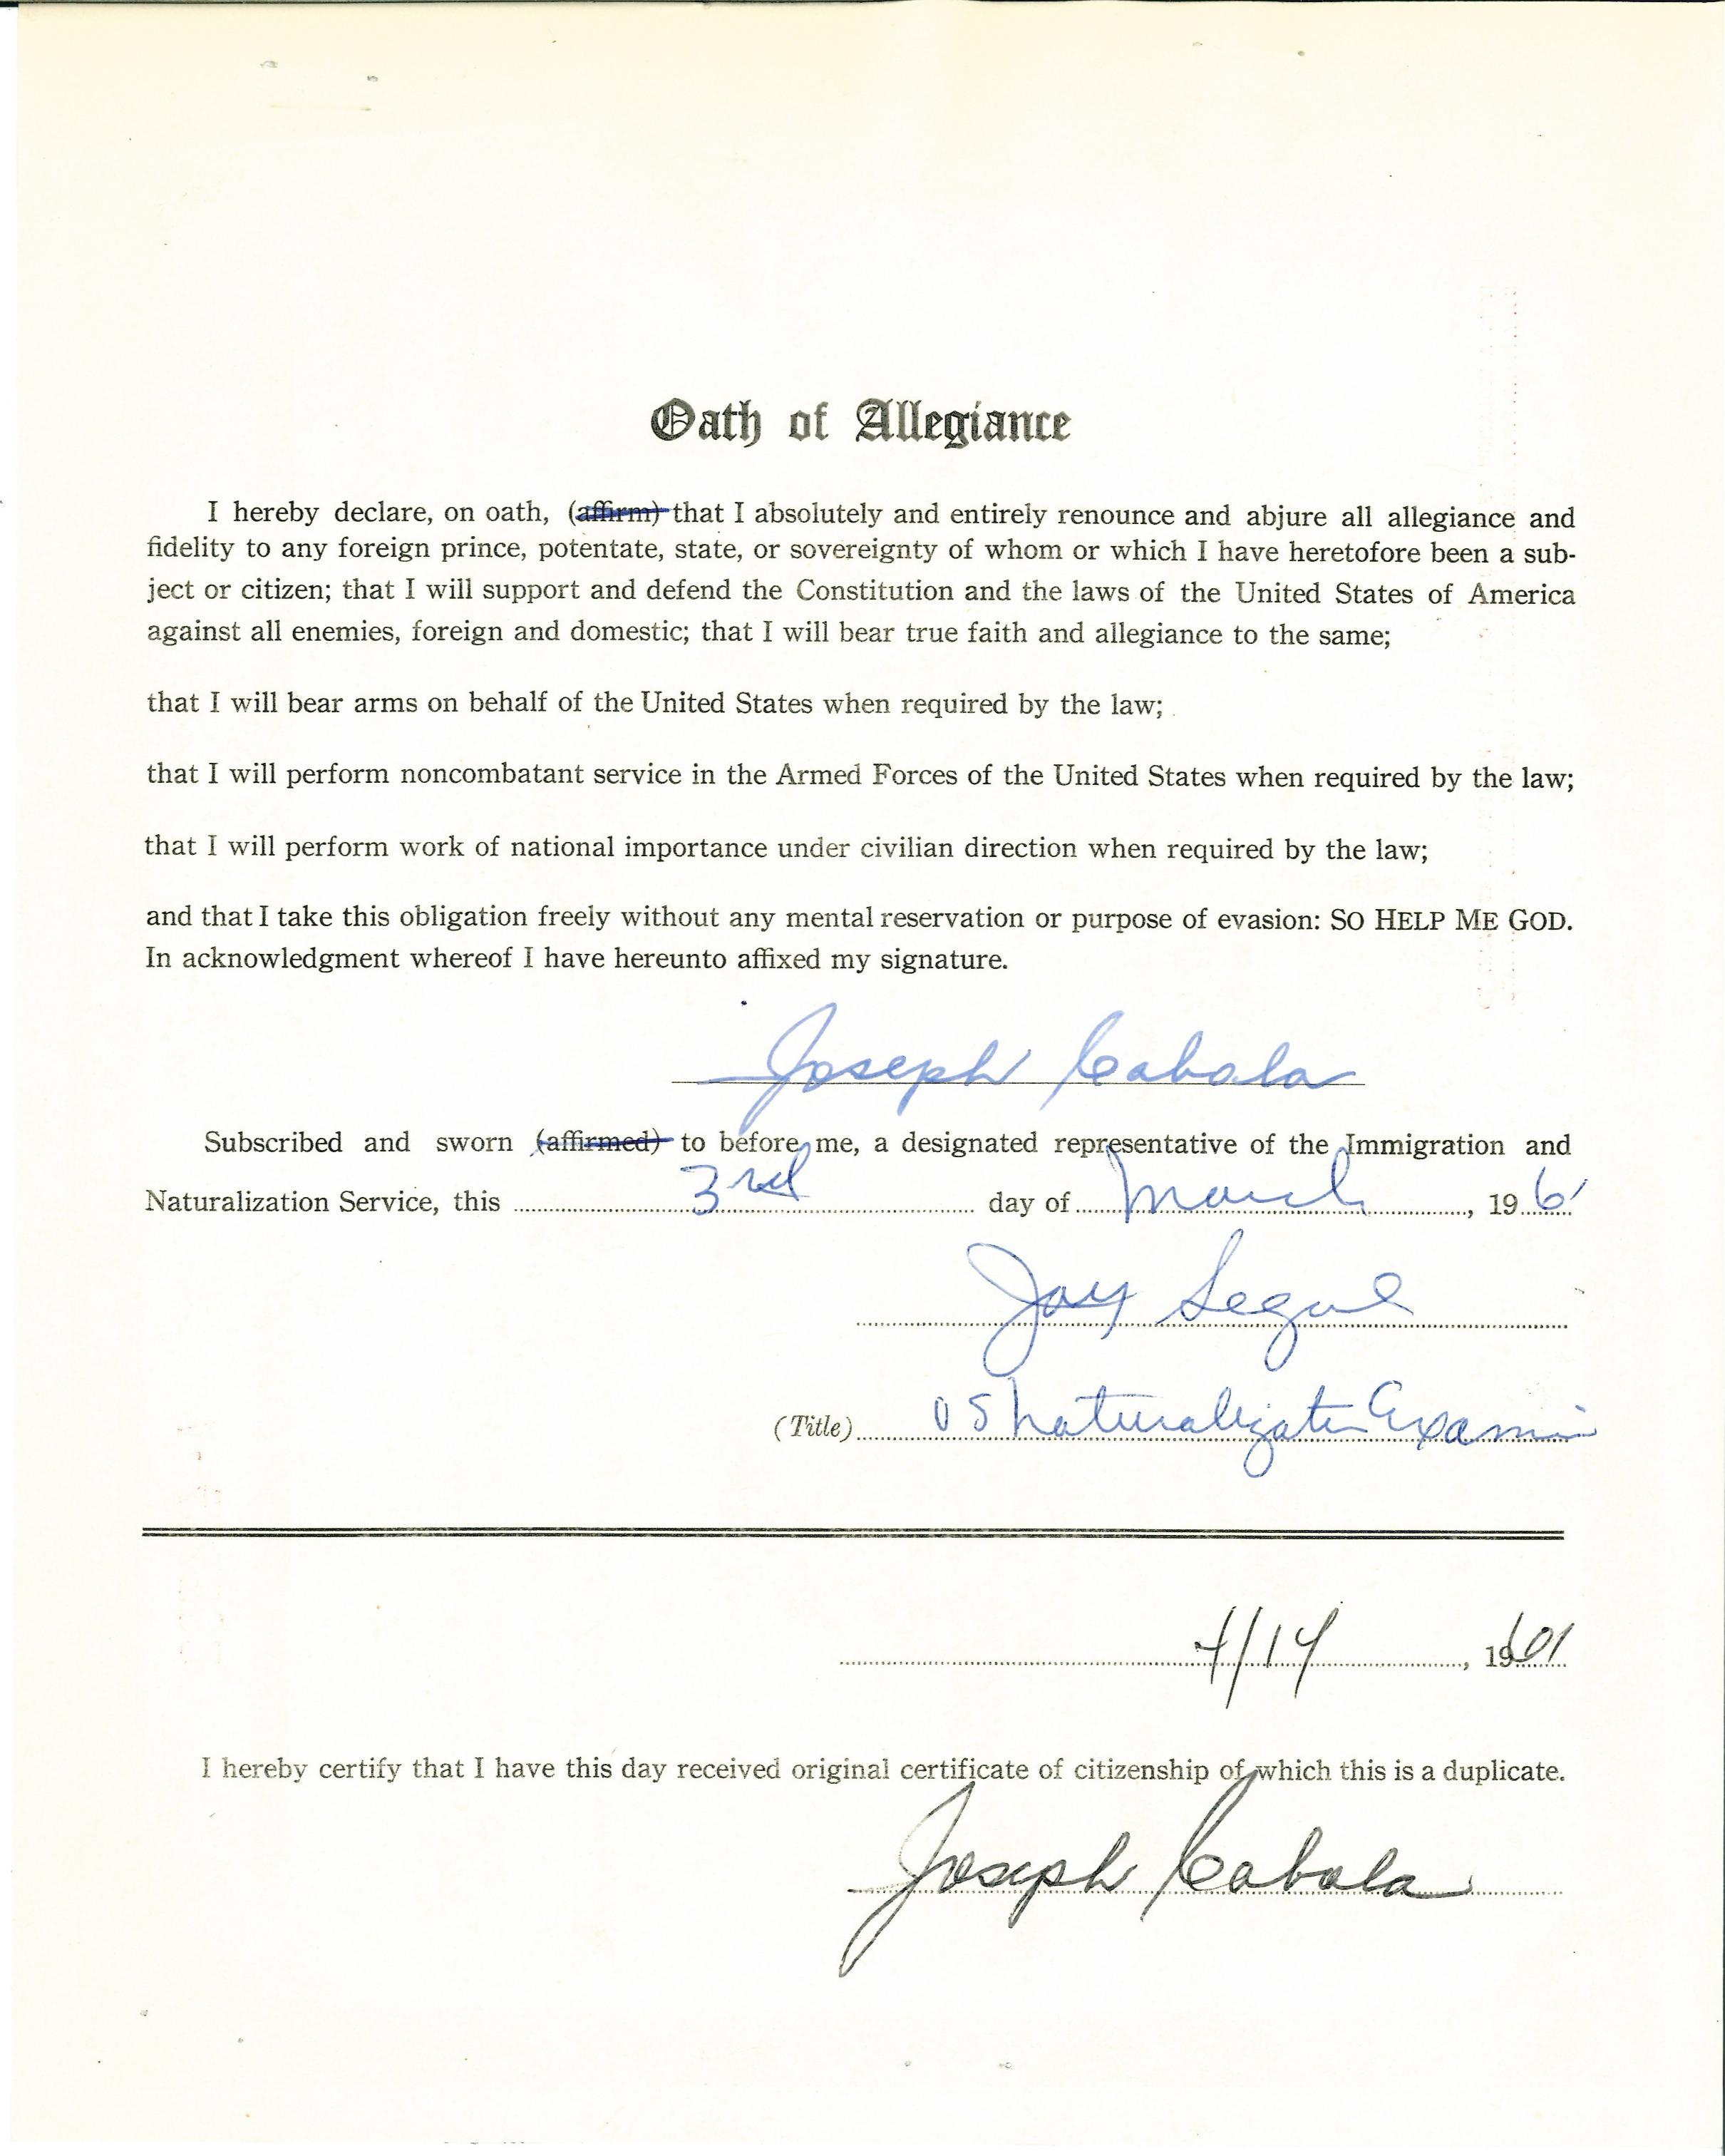 Oath of Allegiance
I hereby declare, on oath, (affirm) that I absolutely and entirely renounce and abjure all allegiance and
fidelity to any foreign prince, potentate, state, or sovereignty of whom or which I have heretofore been a sub-
ject or citizen; that I will support and defend the Constitution and the laws of the United States of America
against all enemies, foreign and domestic; that I will bear true faith and allegiance to the same;
that I will bear arms on behalf of the United States when required by the law;
that I will perform noncombatant service in the Armed Forces of the United States when required by the law;
that I will perform work of national importance under civilian direction when required by the law;
and that I take this obligation freely without any mental reservation or purpose of evasion: SO HELP ME GOD.
In acknowledgment whereof I have hereunto affixed my signature.
Joseph Cabala
Subscribed and sworn (affirmed) to before me, a designated representative of the Immigration and
Naturalization Service, this 3rd day of March, 196
Jay Segal
(Title) US Naturalization Examin
4/14, 1961
I hereby certify that I have this day received original certificate of citizenship of which this is a duplicate.
Joseph Cabala